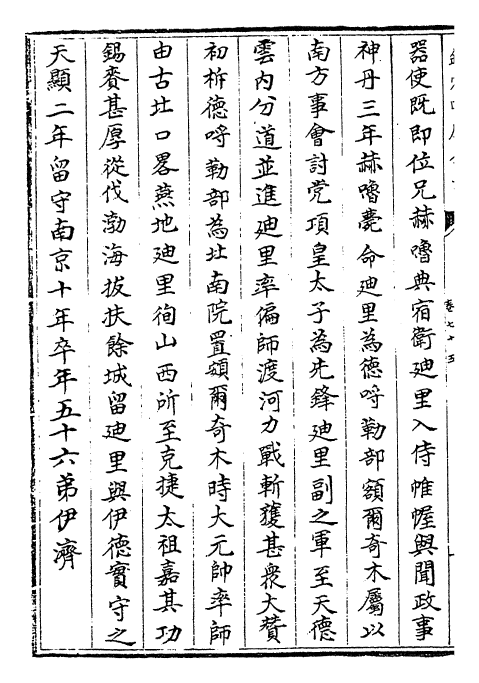 器使既即位兄赫嚕典宿衛廸里入侍帷幄與聞政事
神丹三年赫嚕薨命廸里為德哷勒部額爾竒木屬以
南方事會討党項皇太子為先鋒廸里副之軍至天德
雲内分道並進廸里率偏師渡河力戰斬獲甚衆大贊
初析德哷勒部為北南院置額爾竒木時大元帥率師
由古北口畧燕地廸里徇山西所至克捷太祖嘉其功
錫賚甚厚從伐渤海拔扶餘城留廸里與伊德實守之
天顯二年留守南京十年卒年五十六弟伊濟
卷七十五